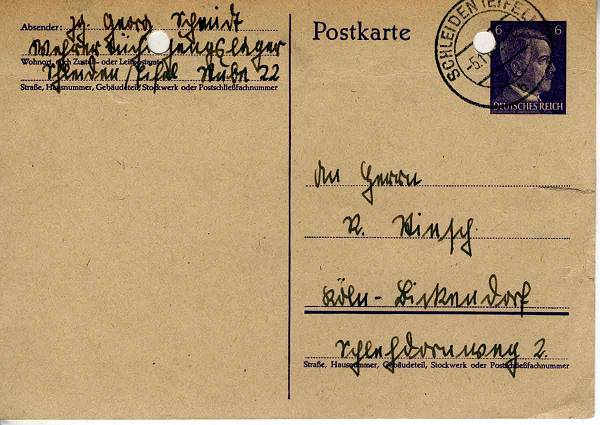 Absender: Jg. Georg Schmidt
Wehrertüchtigungslager
Wohnort, auch Zustell- oder Leitpostamt
Schleiden/Eifel Stube 22
Straße, Hausnummer, Gebäudeteil, Stockwerk oder Postschließfachnummer
Postkarte
SCHLEIDEN (EIFEL)
6 6
DEUTSCHES REICH
An Herrn
R.
Köln-Bickendorf
Schlehdornweg 2.
Straße, Hausnummer, Gebäudeteil, Stockwerk oder Postschließfachnummer